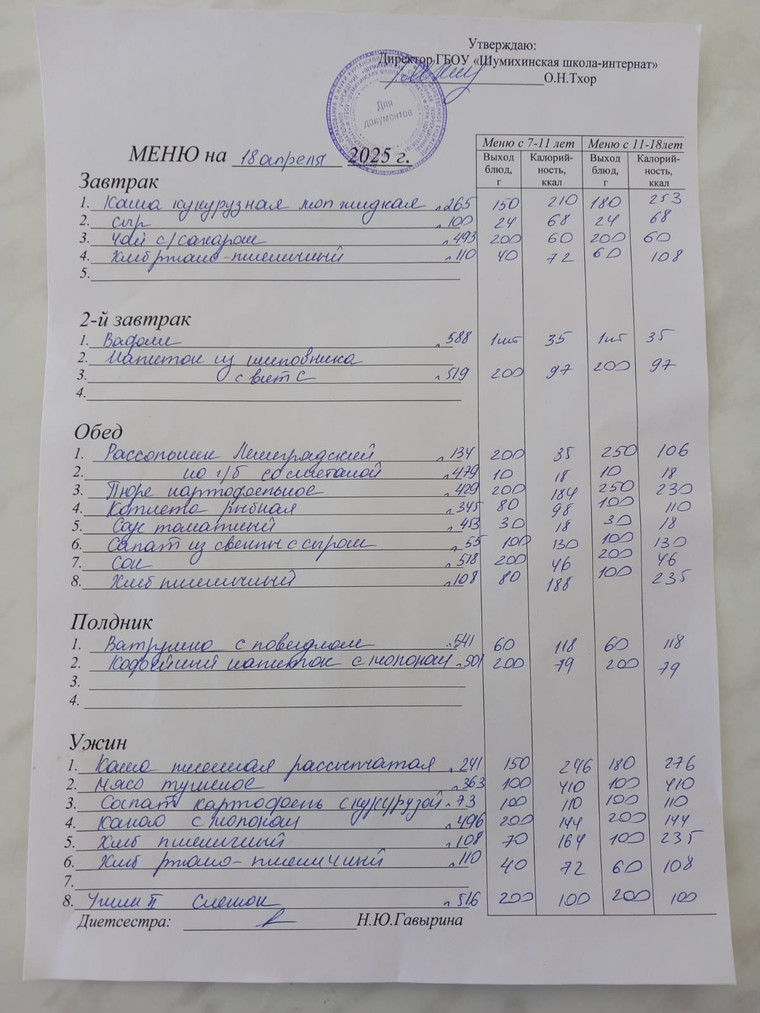 Утверждаю:
Директор ГБОУ «Шумихинская школа-интернат»
О.Н.Тхор
Для документов
МЕНЮ на 18 апреля 2025 г.
Меню с 7-11 лет Меню с 11-18лет
Выход блюд, г Калорий-ность, ккал Выход блюд, г Калорий-ность, ккал
Завтрак
1. Каша кукурузная мол жидкая л 265 150 210 180 253
2. сыр л 100 24 68 24 68
3. чай с/сахаром л 493 200 60 200 60
4. Хлеб ржано-пшеничный л 110 40 72 60 108
5.
2-й завтрак
1. Вафли л 588 1шт 35 1шт 35
2. Напиток из шиповника
3. с вит С л 519 200 97 200 97
4.
Обед
1. Рассольник Ленинградский л 134 200 35 250 106
2. на г/б со сметаной л 479 10 18 10 18
3. Пюре картофельное л 429 200 184 250 230
4. Котлета рыбная л 345 80 98 100 110
5. Соус томатный л 453 30 18 30 18
6. Салат из свеклы с сыром л 55 100 130 100 130
7. Сок л 518 200 46 200 46
8. Хлеб пшеничный л 108 80 188 100 235
Полдник
1. Ватрушка с повидлом л 541 60 118 60 118
2. Кофейный напиток с молоком л 501 200 79 200 79
3.
4.
Ужин
1. Каша пшенная рассыпчатая л 241 150 246 180 276
2. Мясо тушеное л 363 100 410 100 410
3. Салат картофель с кукурузой л 73 100 110 100 110
4. Какао с молоком л 496 200 144 200 144
5. Хлеб пшеничный л 108 70 164 100 235
6. Хлеб ржано-пшеничный л 110 40 72 60 108
7.
8. Ужин II Снежок л 516 200 100 200 100
Диетсестра: Н.Ю.Гавырина